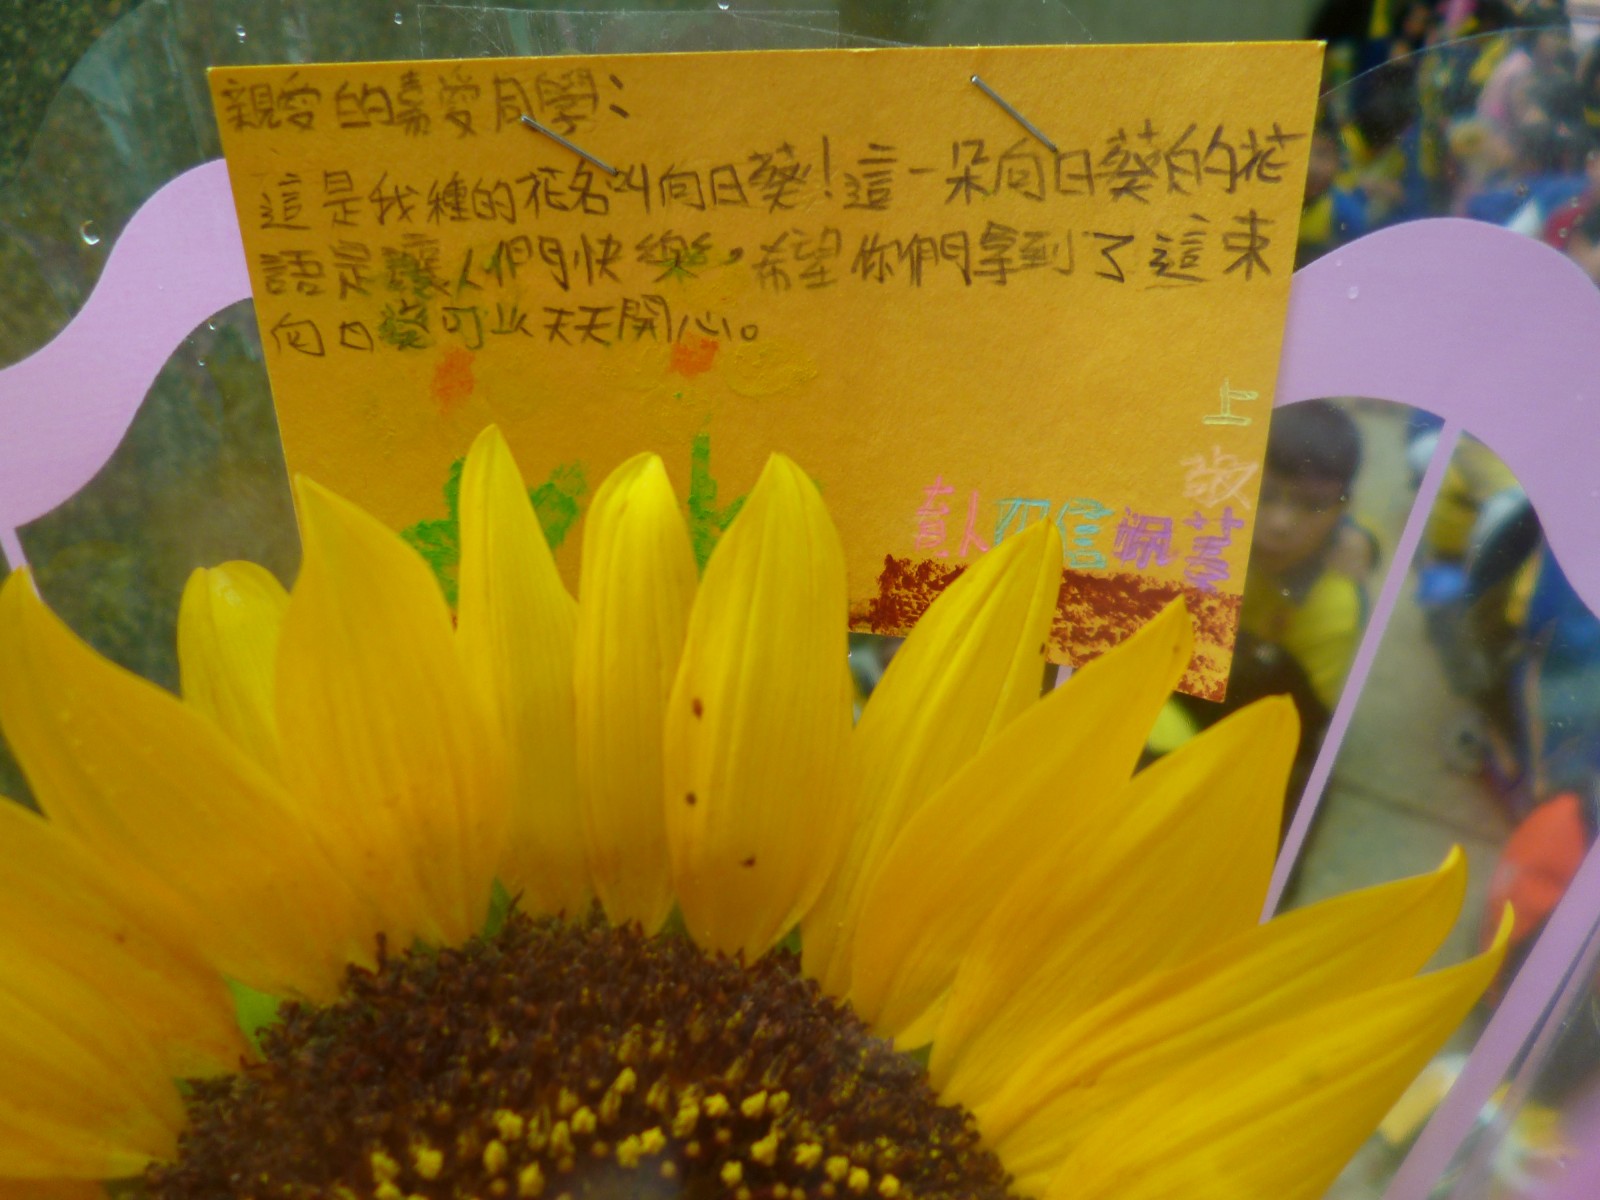 親愛的嘉愛同學：
這是我種的花名叫向日葵！這一朵向日葵的花
語是讓人們快樂，希望你們拿到了這束
向日葵可以天天開心。
上
敬
四信